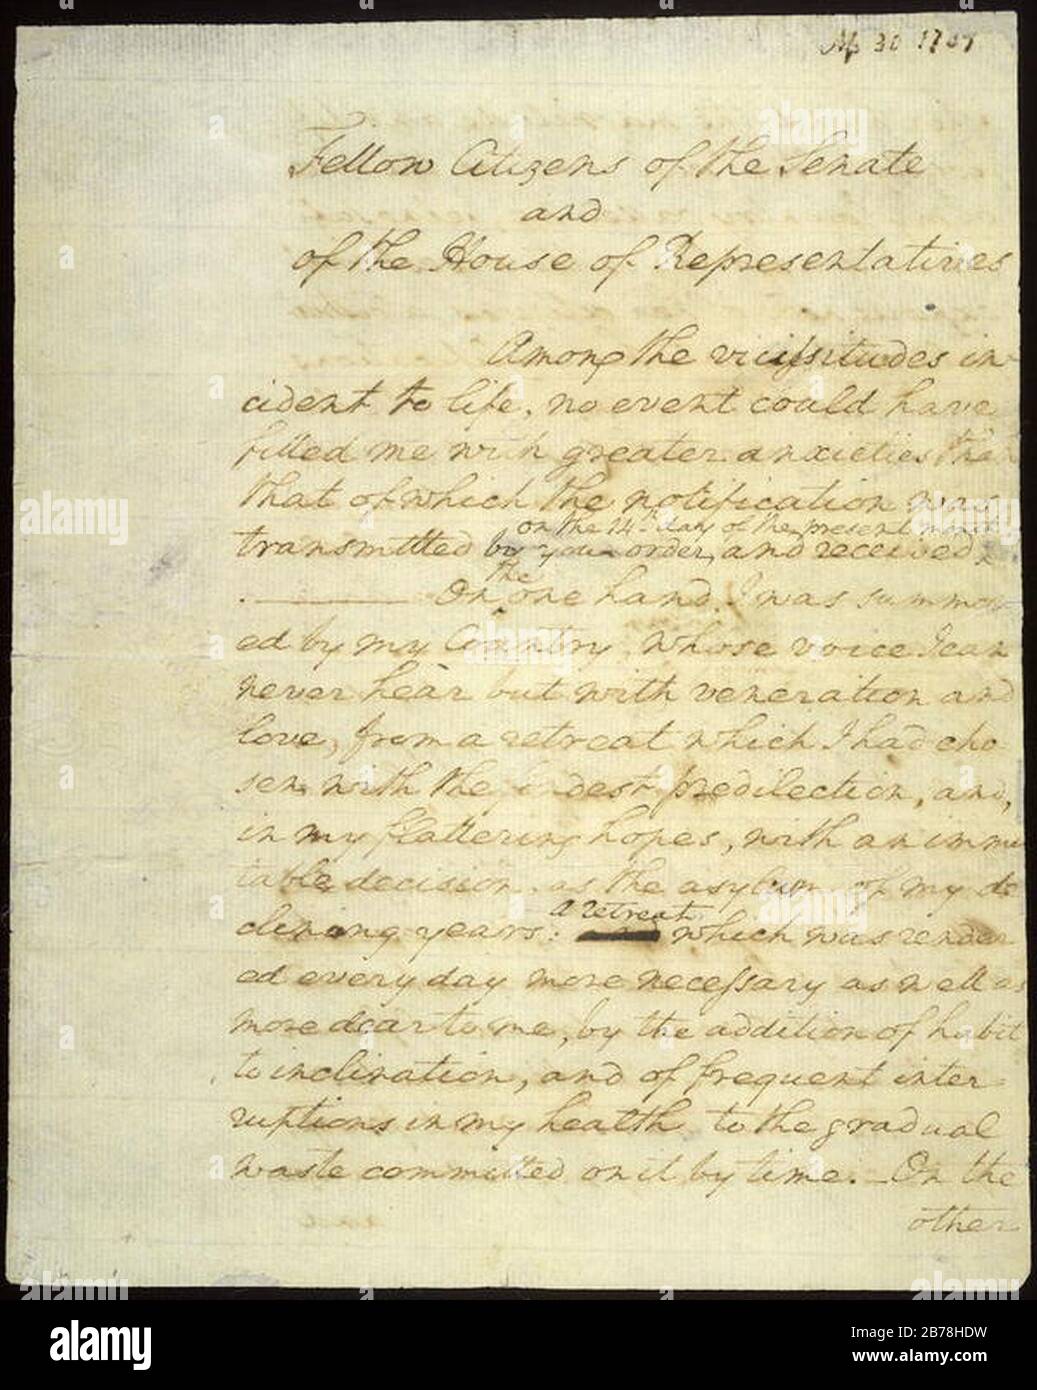 Ap 30 1789
Fellow Citizens of the Senate
and
of the House of Representatives
Among the vicissitudes in-
cident to life, no event could have
filled me with greater anxieties than
that of which the notification was
on the 14th day of the present month
transmitted by your order, and received
the
On one hand, I was summon
ed by my Country, whose voice I can
never hear but with veneration and
love, from a retreat which I had cho
sen with the fondest predilection, and,
in my flattering hopes, with an immu
table decision, as the asylum of my de
clining years: 
a retreat
which was render
ed every day more necessary as well as
more dear to me, by the addition of habit
to inclination, and of frequent inter
ruptions in my health to the gradual
waste committed on it by time. _ On the
other
alamy stock photo
alamy
a
alamy
Image ID: 2B78HDW
www.alamy.com